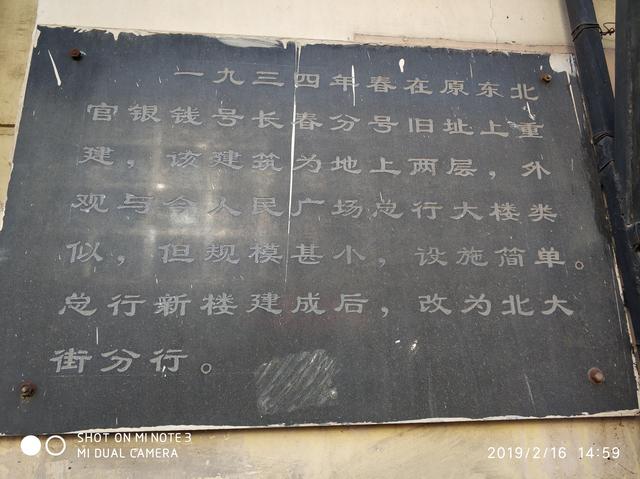 一九三四年春在原东北
官银钱号长春分号旧址上重
建，该建筑为地上两层，外
观与今人民广场总行大楼类
似，但规模甚小，设施简单。
总行新楼建成后，改为北大
街分行。
SHOT ON MI NOTE 3
MI DUAL CAMERA
2019/2/16 14:59